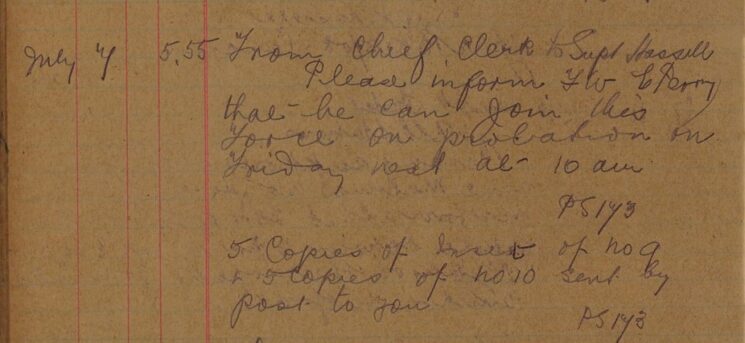 July 4 5.55 From Chief Clerk to Supt Hassell
Please inform F W C Perry
that he can join this
Force on probation on
Friday next at 10 am
PS 143
5 Copies of of No 9
+ 5 Copies of No 10 sent by
post to you
PS 143